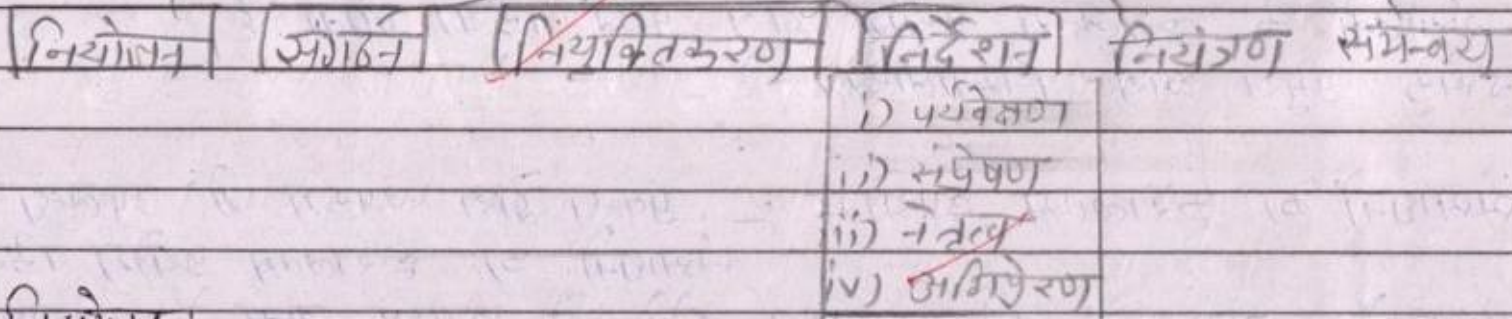 नियोजन संगठन नियुक्तिकरण निर्देशन नियंत्रण समन्वय
i) पर्यवेक्षण
ii) संप्रेषण
iii) नेतृत्व
iv) अभिप्रेरण